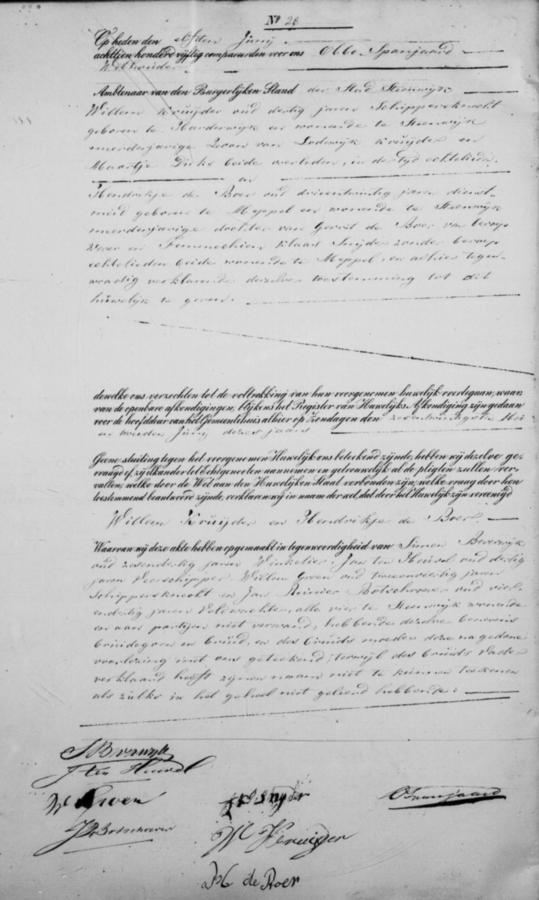 No 28
Op heden den elfden Junij
achttien honderd vijftig compareerden voor ons Obbe Spanjaard
Wethouder
Ambtenaar van den Burgerlijken Stand der Stad Steenwijk
Willem Kruijder oud dertig jaren Schippersknecht
geboren te Harderwijk en wonende te Steenwijk
meerderjarige Zoon van Lodewijk Kruijder en
Maartje Dirks beide overleden, in der tijd echtelieden.
en
Hendrikje de Boer oud drieentwintig jaren dienst
meid geboren te Meppel en wonende te Steenwijk
meerderjarige dochter van Gerrit de Boer van beroep
en Femmechien Klaas Snijder zonder beroep
echtelieden beide wonende te Meppel, en alhier tegen
woordig verklarende dezelve toestemming tot dit
huwelijk te geven.
dewelke ons verzochten tot de voltrekking van hun voorgenomen huwelijk overtegaan, waar
van de openbare afkondigingen, blijkens het Register van Huwelijks Afkondiging zijn gedaan
voor de hoofddeur van het Gemeentehuis alhier op Zondagen den zesentwintigste Mei
en tweeden Junij dezes jaars
Geene stuiting tegen het voorgenomen Huwelijk ons beteekend zijnde, hebben wij dezelve ge-
vraagd of zij elkander tot echtgenooten aannemen en getrouwelijk al de pligten zullen ver-
vullen, welke door de Wet aan den Huwelijken Staat verbonden zijn; welke vraag door hen
toestemmend beantwoord zijnde, verklaren wij in naam der wet, dat door het Huwelijk zijn vereenigd
Willem Kruijder en Hendrikje de Boer.
Waarvan wij deze akte hebben opgemaakt in tegenwoordigheid van Simon Beverwijk
oud zesendertig jaren Winkelier, Jan ten Heuvel oud dertig
jaren Veerschipper, Willem Groen oud tweeenveertig jaren
Schippersknecht en Jan Reinier Botschover oud vier
endertig jaren Veldwachter, alle vier te Steenwijk wonende
en aan partijen niet verwand, hebbende dezelve benevens
bruidegom en bruid, en des bruids moeder deze na gedane
voorlezing met ons geteekend; terwijl des bruids Vader
verklaard heeft zijnen naam niet te kunnen teekenen
als zulks in het geheel niet geleerd hebbende.
S Beverwijk
J ten Heuvel
W Groen
K Snijder
O Spanjaard
J R Botschover
W Kruijder
H de Boer